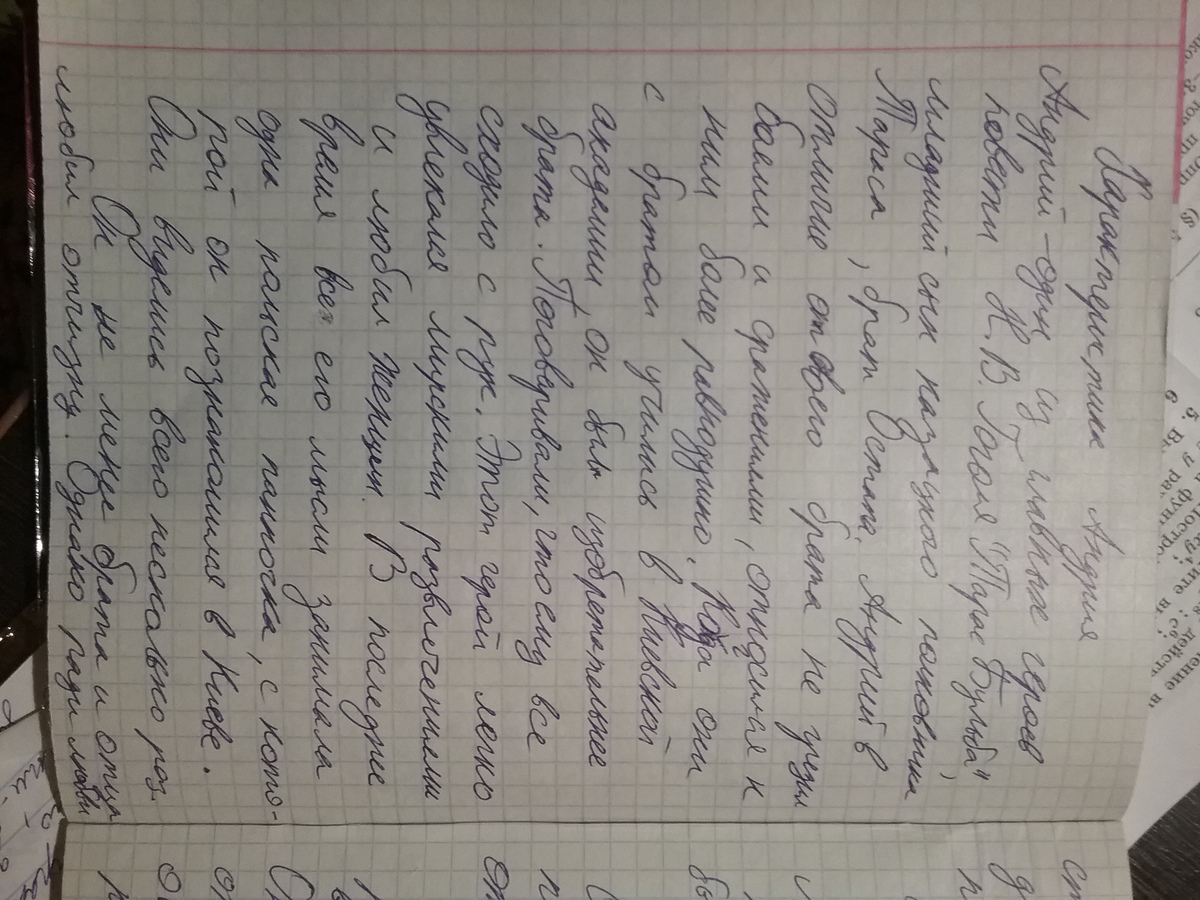 Характеристика Андрия
Андрий - один из главных героев
повести Н.В. Гоголя "Тарас Бульба",
младший сын казацкого полковника
Тараса, брат Остапа. Андрий в
отличие от своего брата не грезил
боями и сражениями, относился к
ним более равнодушно. Когда они
с братом учились в Киевской
академии, он был изобретательнее
брата. Поговаривали, что ему все
сходило с рук. Этот герой легко
увлекался мирскими развлечениями
и любил женщин. В последнее
время все его мысли занимала
одна панская панночка, с кото-
рой он познакомился в Киеве.
Они виделись всего несколько раз.
Он не менее брата и отца
любил отчизну. Однако ради любви